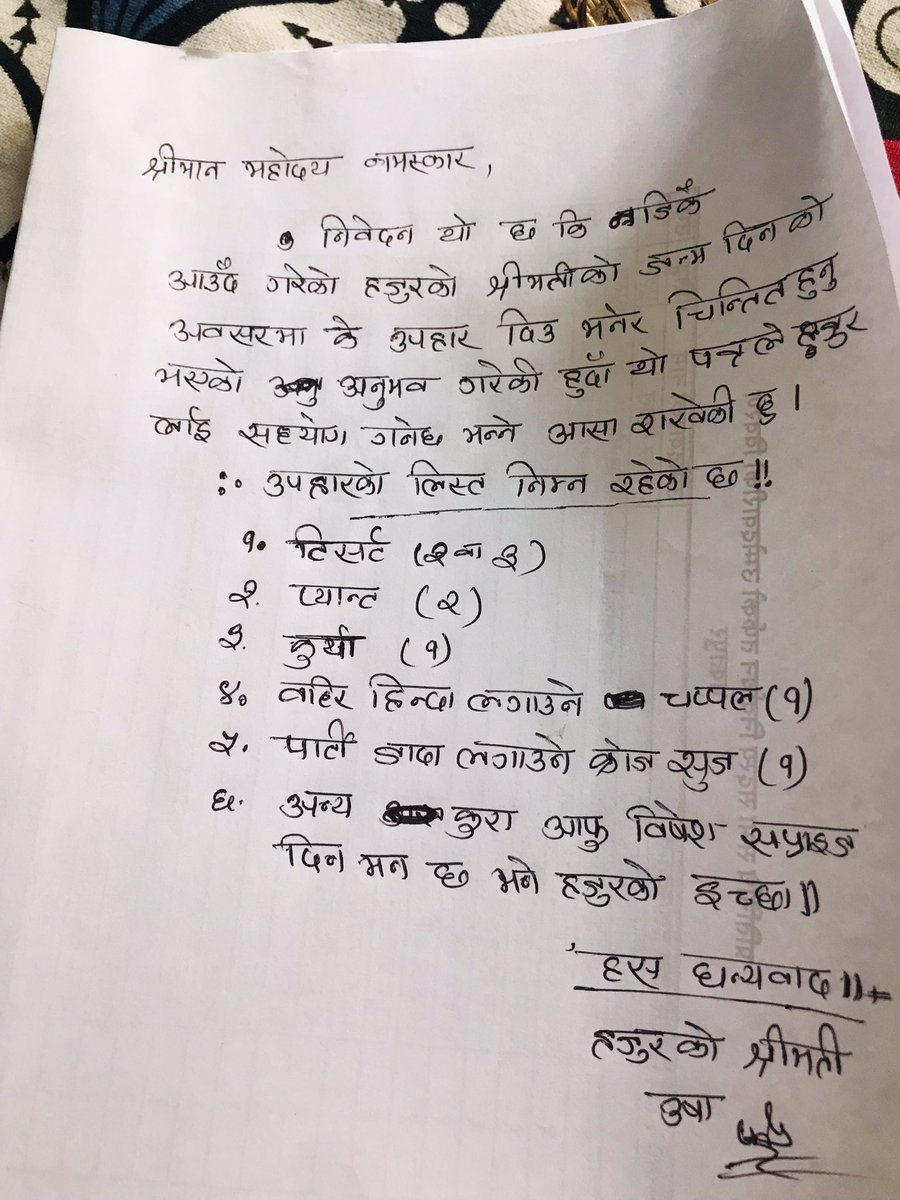 श्रीमान महोदय नमस्कार,
निवेदन यो छ कि नजिकै
आउँदै गरेको हजुरको श्रीमतीको जन्म दिनको
अवसरमा के उपहार दिउ भनेर चिन्तित हुनु
भएको अनुभव गरेकी हुदाँ यो पत्रले हजुर
लाई सहयोग गर्नेछ भन्ने आसा राखेकी छु ।
ः उपहारको लिस्त निम्न रहेको छ॥
१. टिसर्ट (२ वा ३)
२. प्यान्ट (२)
३. कुर्था (१)
४. वाहिर हिन्दा लगाउने चप्पल (१)
५. पार्टी जादा लगाउने क्लोज शुज (१)
६. अन्य कुरा आफु विषेश सप्राइज
दिन मन छ भने हजुरको इच्छा॥
हस धन्यवाद॥
हजुरको श्रीमती
उषा